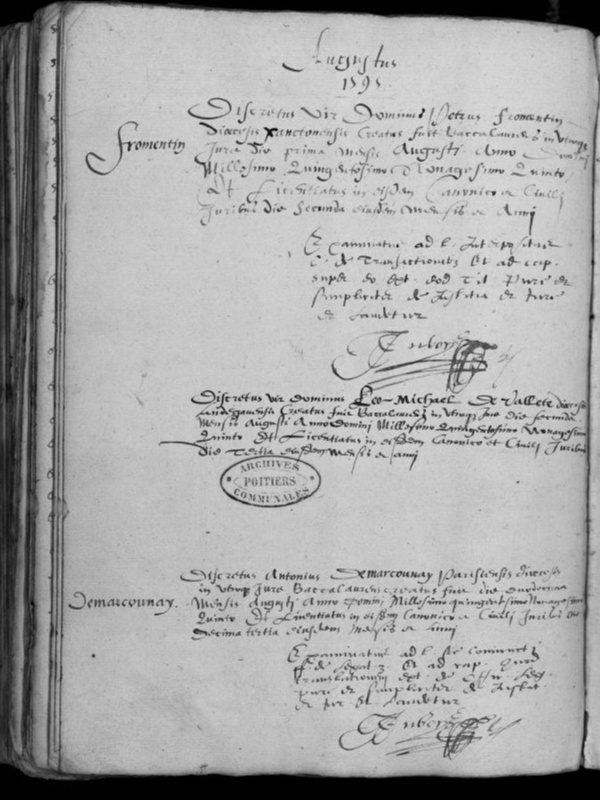 Augustus
1595.
Fromentin
Discretus Vir Dominus Petrus Fromentin
diocesis Xanctonensis Creatus fuit Baccalaureus in Utroque
Jure die prima Mensis Augusti Anno Domini
Millesimo Quingentesimo Nonagesimo Quinto
Et Licentiatus in eisdem Canonico et Civili
Juribus die Secunda eiusdem Mensis et Anni
Examinatus ad l.
C. de Transactionibus Et ad cap.
super eo ext. eod. Tit. Pure et
Simpliciter de Justitia et Jure
et Laudetur
Discretus vir dominus Leo-Michael De Vallete diocesis
Creatus fuit Baccalaureus in utroque Jure die secunda
Mensis Augusti Anno Domini Millesimo Quingentesimo Nonagesimo
Quinto Et Licentiatus in eisdem Canonico et Civili Juribus
die Tertia eiusdem Mensis et anni
ARCHIVES
POITIERS
COMMUNALES
Demarcounay.
Discretus Antonius Demarcounay Parisiensis diocesis
in utroque Jure Baccalaureus creatus fuit die duodecima
Mensis Augusti Anno Domini Millesimo quingentesimo Nonagesimo
Quinto Et Licentiatus in eisdem Canonico et Civili Juribus die
decima tertia eiusdem Mensis et anni
Examinatus ad l.
ff. de Legat. 2. Et ad cap.
Translationem ext. de Off. Leg.
pure et Simpliciter de Justit.
et Jur. et Laudetur